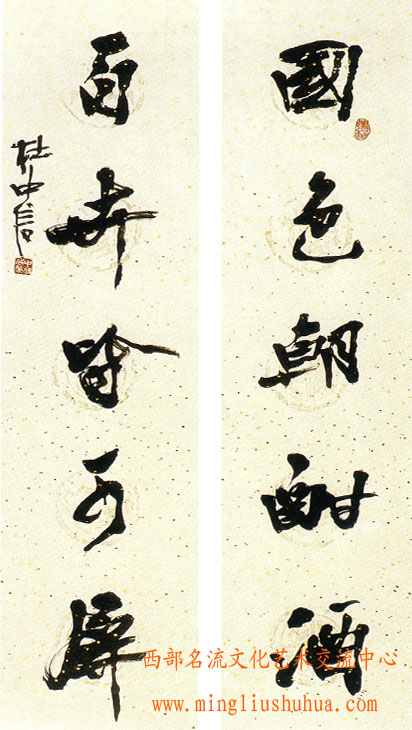 國色朝酣酒
百卉皆可屏
杜中信
西部名流文化艺术交流中心
www.mingliushuhua.com